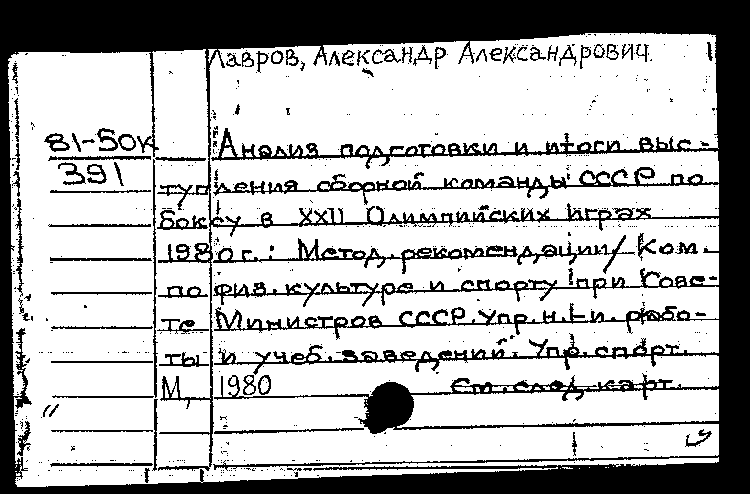 Лавров, Александр Александрович
81-50к
391
Анализ подготовки и итоги выс-
тупления сборной команды СССР по
боксу в XXII Олимпийских играх
1980 г.: Метод. рекомендации/ Ком.
по физ. культуре и спорту при Сове-
те Министров СССР. Упр. н.-и. рабо-
ты и учеб. заведений. Упр. спорт.
М., 1980 См. след. карт.